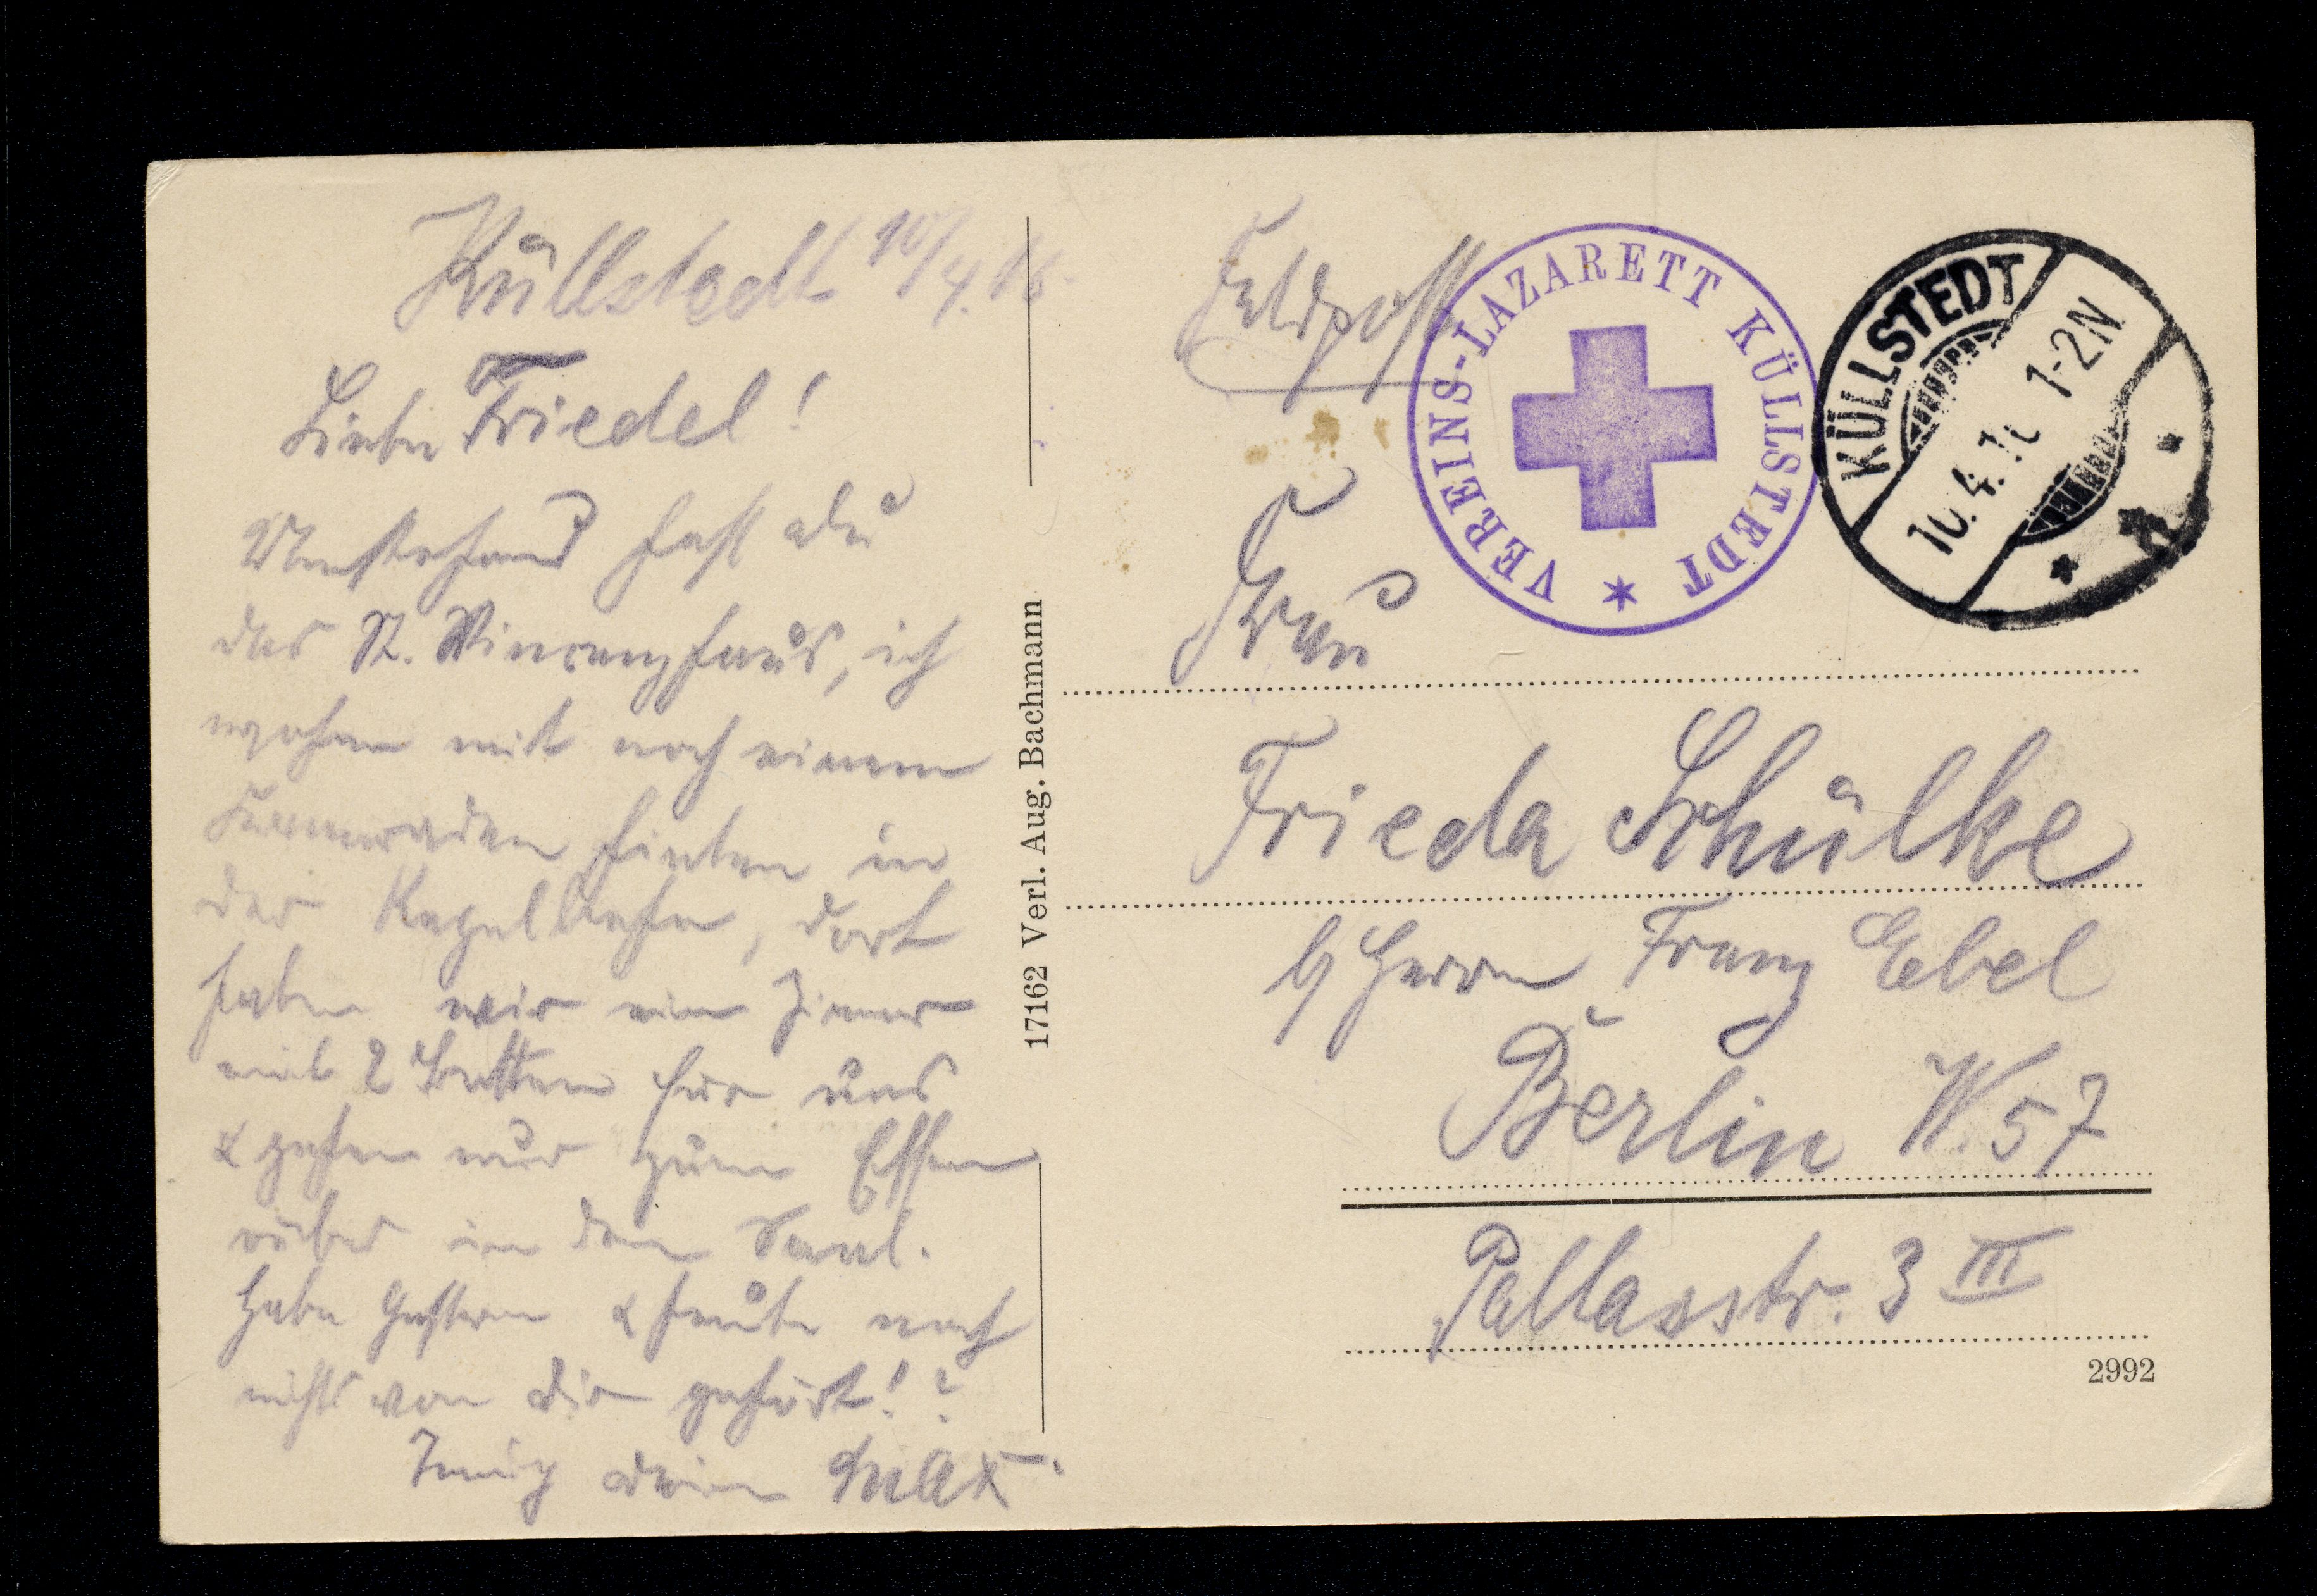 Küllstedt 10/4.16.
Liebe Friedel!
Umstehend hast du
das St. Vincenzhaus, ich
wohne mit noch einem
Kameraden hinten in
der Kegelbahn, dort
haben wir ein Zimmer
mit 2 Betten für uns
& gehen nur zum Essen
rüber in den Saal.
Habe gestern & heute noch
nichts von dir gehört!?
Innig dein Max.
17162 Verl. Aug. Bachmann
Feldpost
VEREINS-LAZARETT KÜLLSTEDT
KÜLLSTEDT
10.4.16 1-2N
Frau
Frieda Schülke
b/ Herrn Franz Ebel
Berlin W. 57
Pallasstr. 3 III
2992